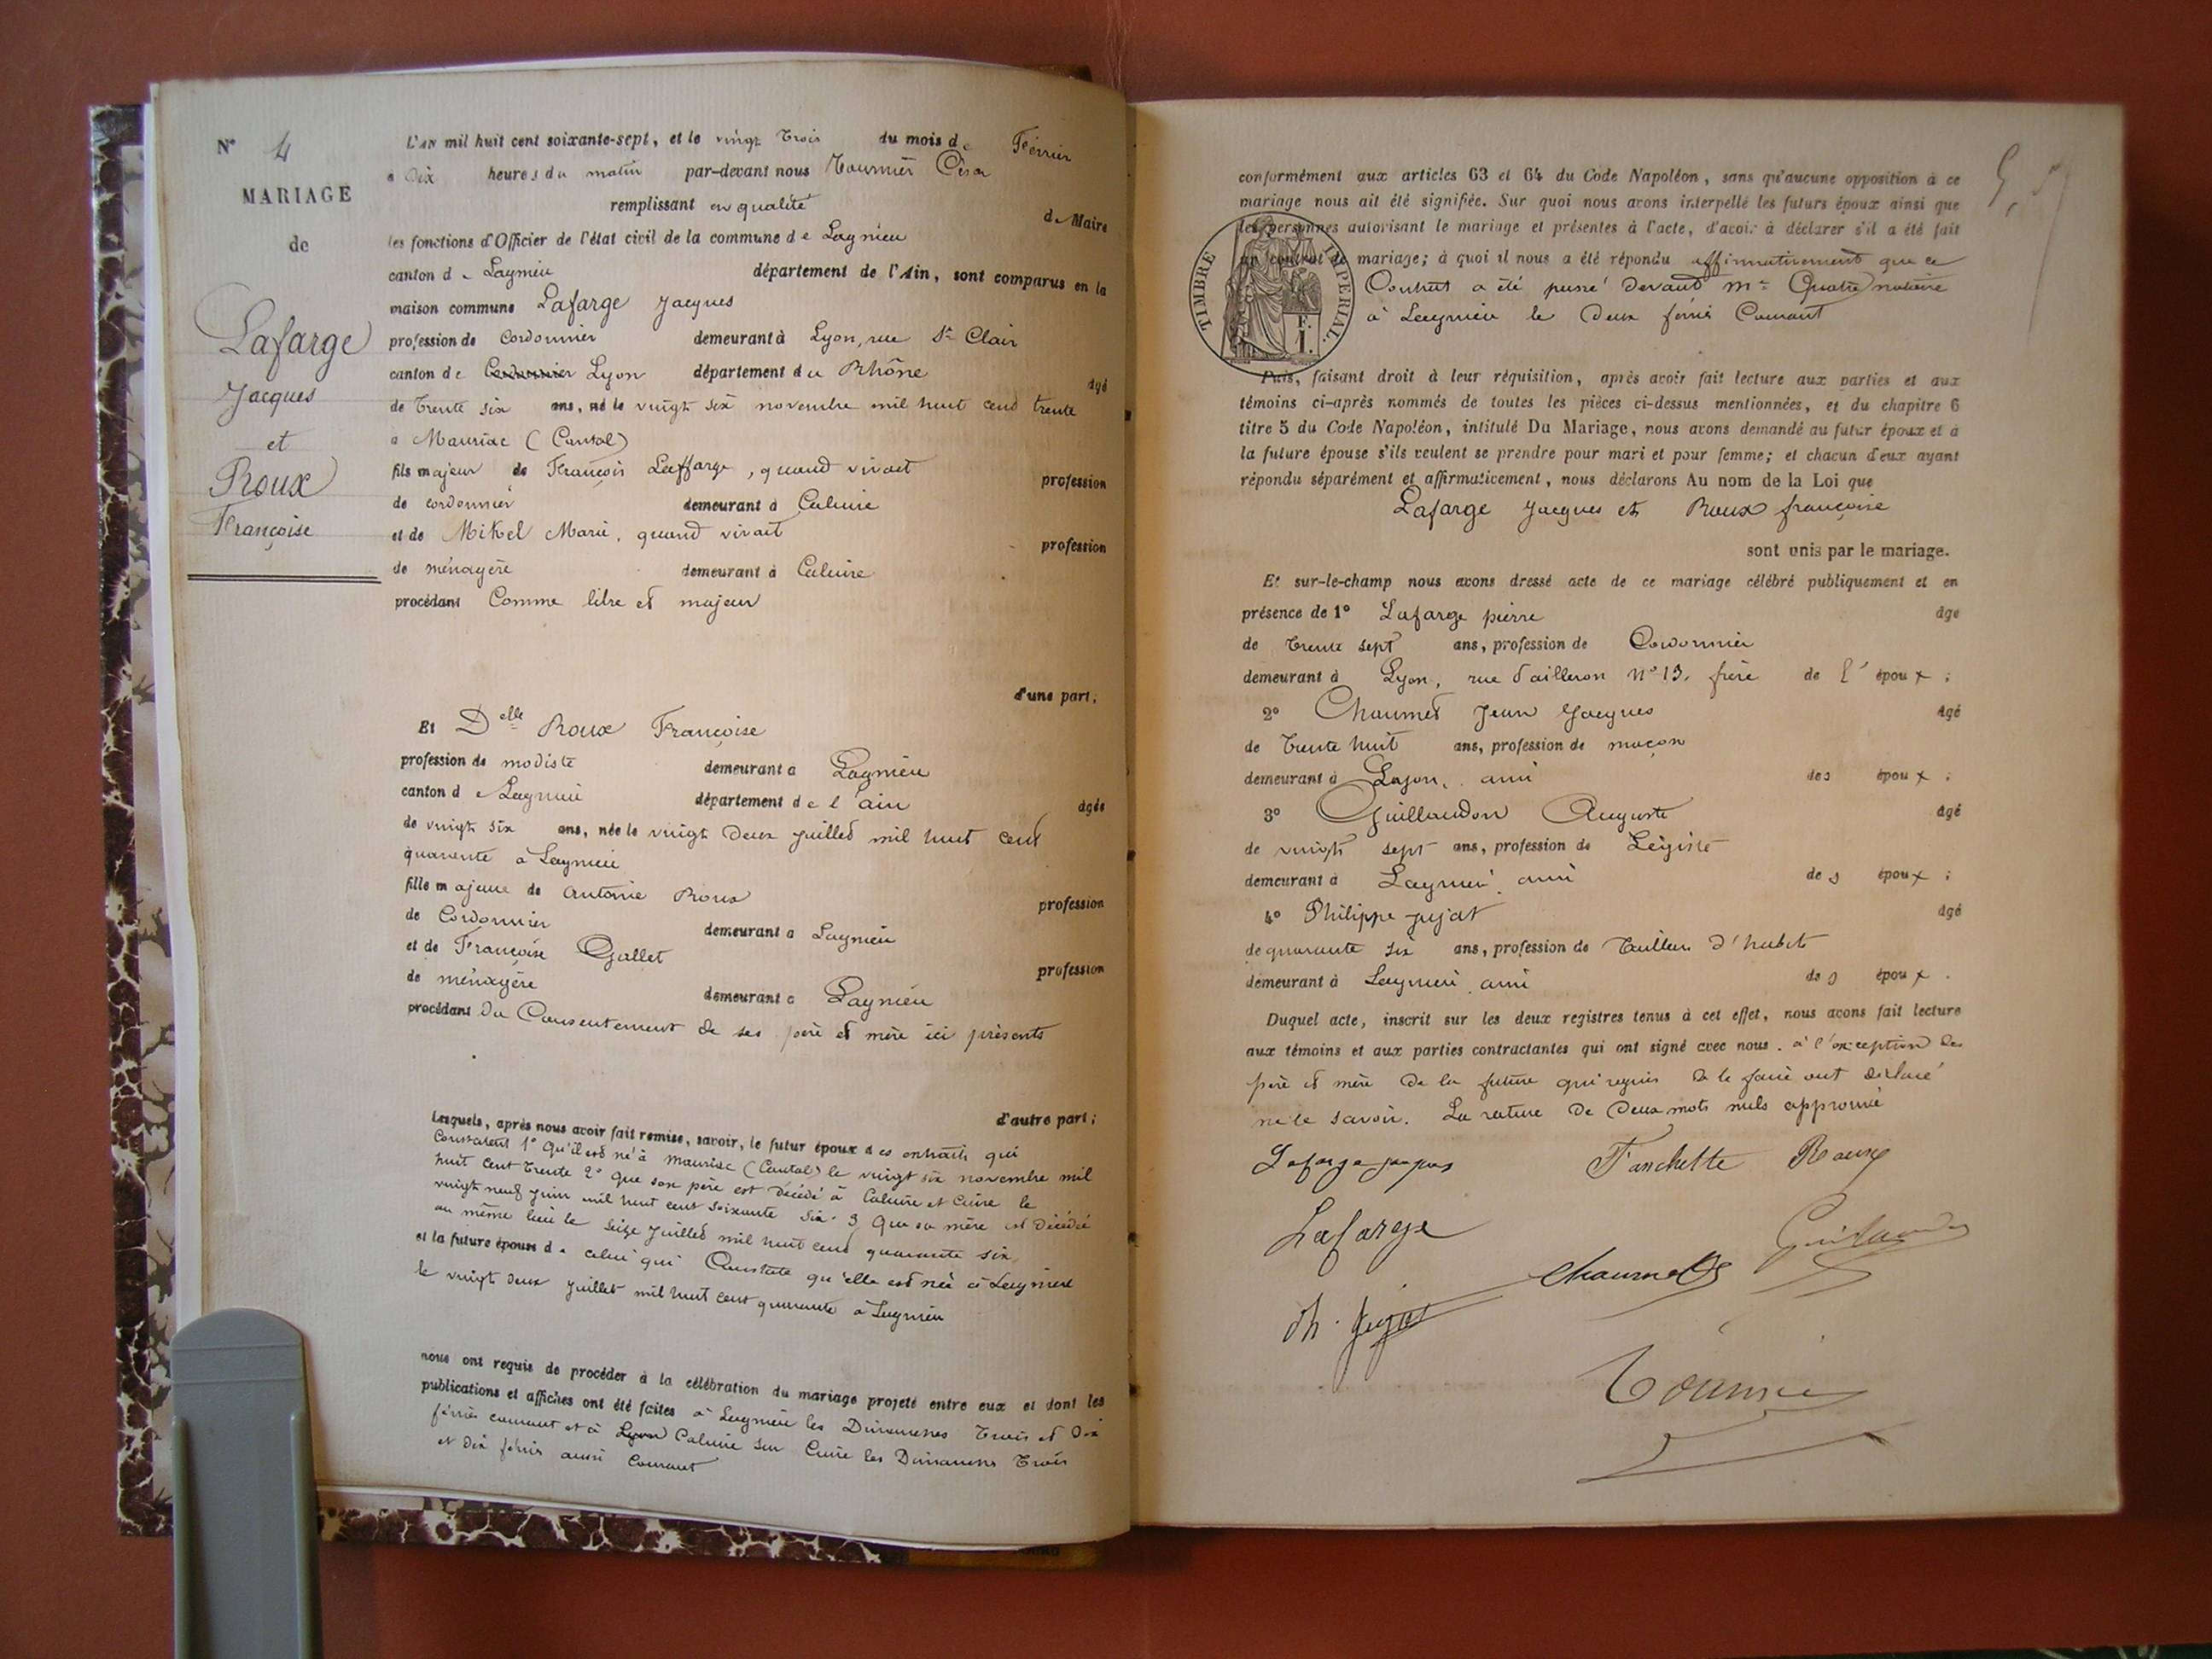 N° 4
MARIAGE
de
Lafarge
Jacques
et
Roux
Françoise
L'AN mil huit cent soixante-sept, et le vingt Trois du mois de Février
à Dix heures du matin par-devant nous Tournier César
remplissant en qualité de Maire
les fonctions d'Officier de l'état civil de la commune de Lagnieu
canton de Lagnieu département de l'Ain, sont comparus en la
maison commune Lafarge Jacques
profession de Cordonnier demeurant à Lyon, rue St Clair
canton de Cordonnier Lyon département du Rhône âgé
de Trente six ans, né le vingt six novembre mil huit cent trente
à Mauriac (Cantal)
fils majeur de François Laffarge, quand vivait profession
de cordonnier demeurant à Caluire
et de Mikel Marie, quand vivait profession
de ménagère demeurant à Caluire
procédant Comme libre et majeur
d'une part;
Et Delle Roux Françoise
profession de modiste demeurant à Lagnieu
canton de Lagnieu département de l'ain âgée
de vingt six ans, née le vingt Deux juillet mil huit cent
quarante à Lagnieu
fille majeure de Antoine Roux profession
de Cordonnier demeurant à Lagnieu
et de Françoise Gallet profession
de ménagère demeurant à Lagnieu
procédant du Consentement de ses père et mère ici présents
d'autre part;
Lesquels, après nous avoir fait remise, savoir, le futur époux des extraits qui
Constatent 1° Qu'il est né à Mauriac (Cantal) le vingt six novembre mil
huit cent Trente 2° que son père est décédé à Caluire et Cuire le
vingt neuf juin mil huit cent soixante six. 3 Que sa mère est décédée
au même lieu le Seize Juillet mil huit cent quarante six,
et la future épouse de celui qui Constate qu'elle est née à Lagnieu
le vingt deux juillet mil huit cent quarante à Lagnieu
nous ont requis de procéder à la célébration du mariage projeté entre eux et dont les
publications et affiches ont été faites à Lagnieu les Dimanches Trois et Dix
février courant et à Lyon Caluire sur Cuire les Dimanches Trois
et dix février aussi Courant
conformément aux articles 63 et 64 du Code Napoléon, sans qu'aucune opposition à ce
mariage nous ait été signifiée. Sur quoi nous avons interpellé les futurs époux ainsi que
les personnes autorisant le mariage et présentes à l'acte, d'avoir à déclarer s'il a été fait
un contrat de mariage; à quoi il nous a été répondu affirmativement que ce
Contrat a été passé devant Me Quatre notaire
à Lagnieu le Deux février Courant
TIMBRE IMPERIAL.
F.
1.
Puis, faisant droit à leur réquisition, après avoir fait lecture aux parties et aux
témoins ci-après nommés de toutes les pièces ci-dessus mentionnées, et du chapitre 6
titre 5 du Code Napoléon, intitulé Du Mariage, nous avons demandé au futur époux et à
la future épouse s'ils veulent se prendre pour mari et pour femme; et chacun d'eux ayant
répondu séparément et affirmativement, nous déclarons Au nom de la Loi que
Lafarge Jacques et Roux françoise
sont unis par le mariage.
Et sur-le-champ nous avons dressé acte de ce mariage célébré publiquement et en
présence de 1° Lafarge pierre âgé
de Trente sept ans, profession de Cordonnier
demeurant à Lyon, rue n° 13. frère de l'époux;
2° Chaumet Jean Jacques âgé
de Trente huit ans, profession de maçon
demeurant à Lyon, ami des époux;
3° Guillaudon Auguste âgé
de vingt sept ans, profession de Légiste
demeurant à Lagnieu, ami des époux;
4° Philippe Jujat âgé
de quarante six ans, profession de Tailleur d'habits
demeurant à Lagnieu, ami des époux.
Duquel acte, inscrit sur les deux registres tenus à cet effet, nous avons fait lecture
aux témoins et aux parties contractantes qui ont signé avec nous. à l'exception des
père et mère de la future qui requis de le faire ont déclaré
ne le savoir. La rature de deux mots nuls approuvée
Lafarge jacques Fanchette Roux
Lafarge
Chaumet
Ph. Jujat